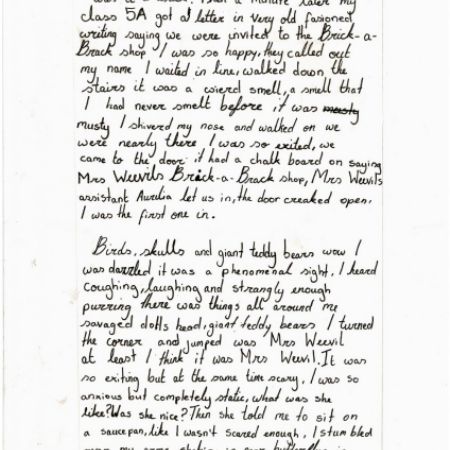 class 5A got a letter in very old fasioned
writing saying we were invited to the Brick-a-
Brack shop I was so happy, they called out
my name I waited in line, walked down the
stairs it was a wierd smell, a smell that
I had never smelt before it was musty
musty I shivered my nose and walked on we
were nearly there I was so exited, we
came to the door it had a chalk board on saying
Mrs Weevils Brick-a-Brack shop, Mrs Weevils
assistant Aurelia let us in, the door creaked open.
I was the first one in.
Birds, skulls and giant teddy bears wow I
was dazzled it was a phenomenal sight. I heard
coughing, laughing and strangly enough
purring there was things all around me
savaged dolls head, giant teddy bears I turned
the corner and jumped was Mrs Weevil
at least I think it was Mrs Weevil. It was
so exiting but at the same time scary. I was so
anxious but completely static, what was she
like? Was she nice? Then she told me to sit on
a saucepan, like I wasn't scared enough, I stumbled